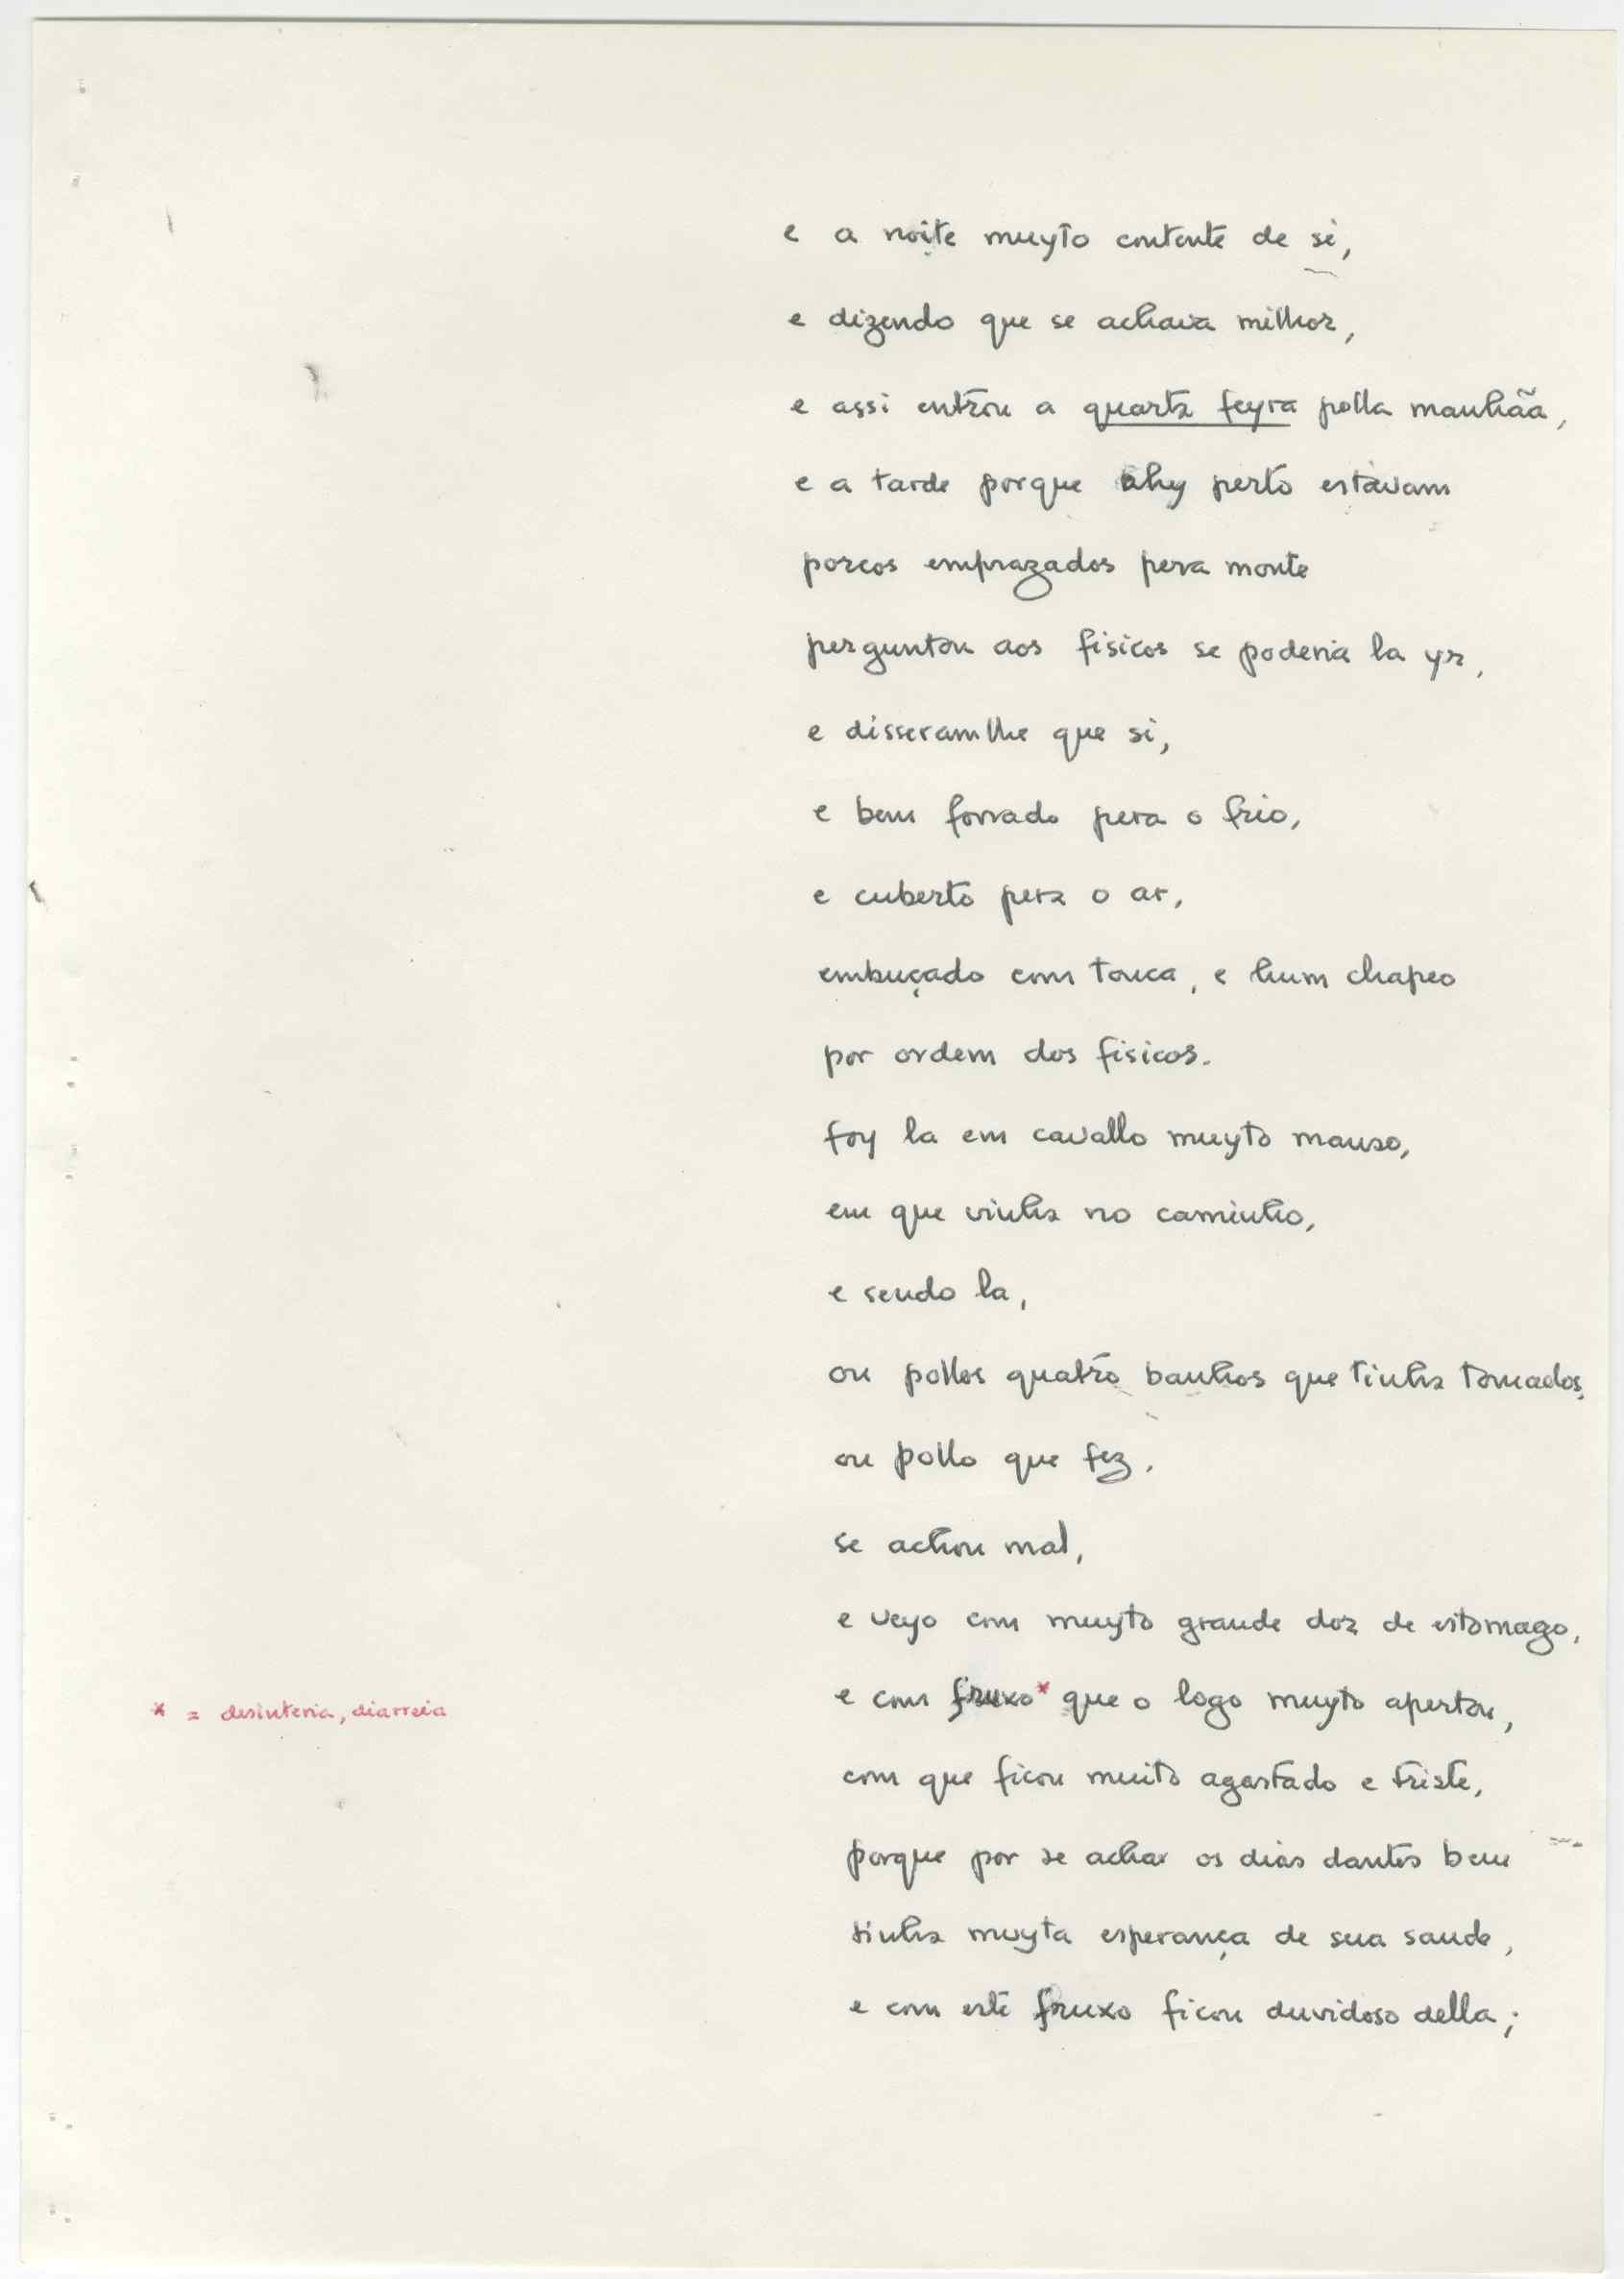 e a noite muyto contente de si,
e dizendo que se achava milhor,
e assi entrou a quarta feyra polla manhãa,
e a tarde porque ahy perto estavam
porcos emprazados pera monte
perguntou aos fisicos se poderia la yr,
e disseramlhe que si,
e bem forrado pera o frio,
e cuberto pera o ar,
embuçado com touca, e hum chapeo
por ordem dos fisicos.
foy la em cavallo muyto manso,
em que vinha no caminho,
e sendo la,
ou pollos quatro banhos que tinha tomados,
ou pollo que fez,
se achou mal,
e veyo com muyto grande dor de estomago,
e com fruxo* que o logo muyto apertou,
* = desinteria, diarreia
com que ficou muito agastado e triste,
porque por se achar os dias dantes bem
tinha muyta esperança de sua saude,
e com este fruxo ficou duvidoso della;